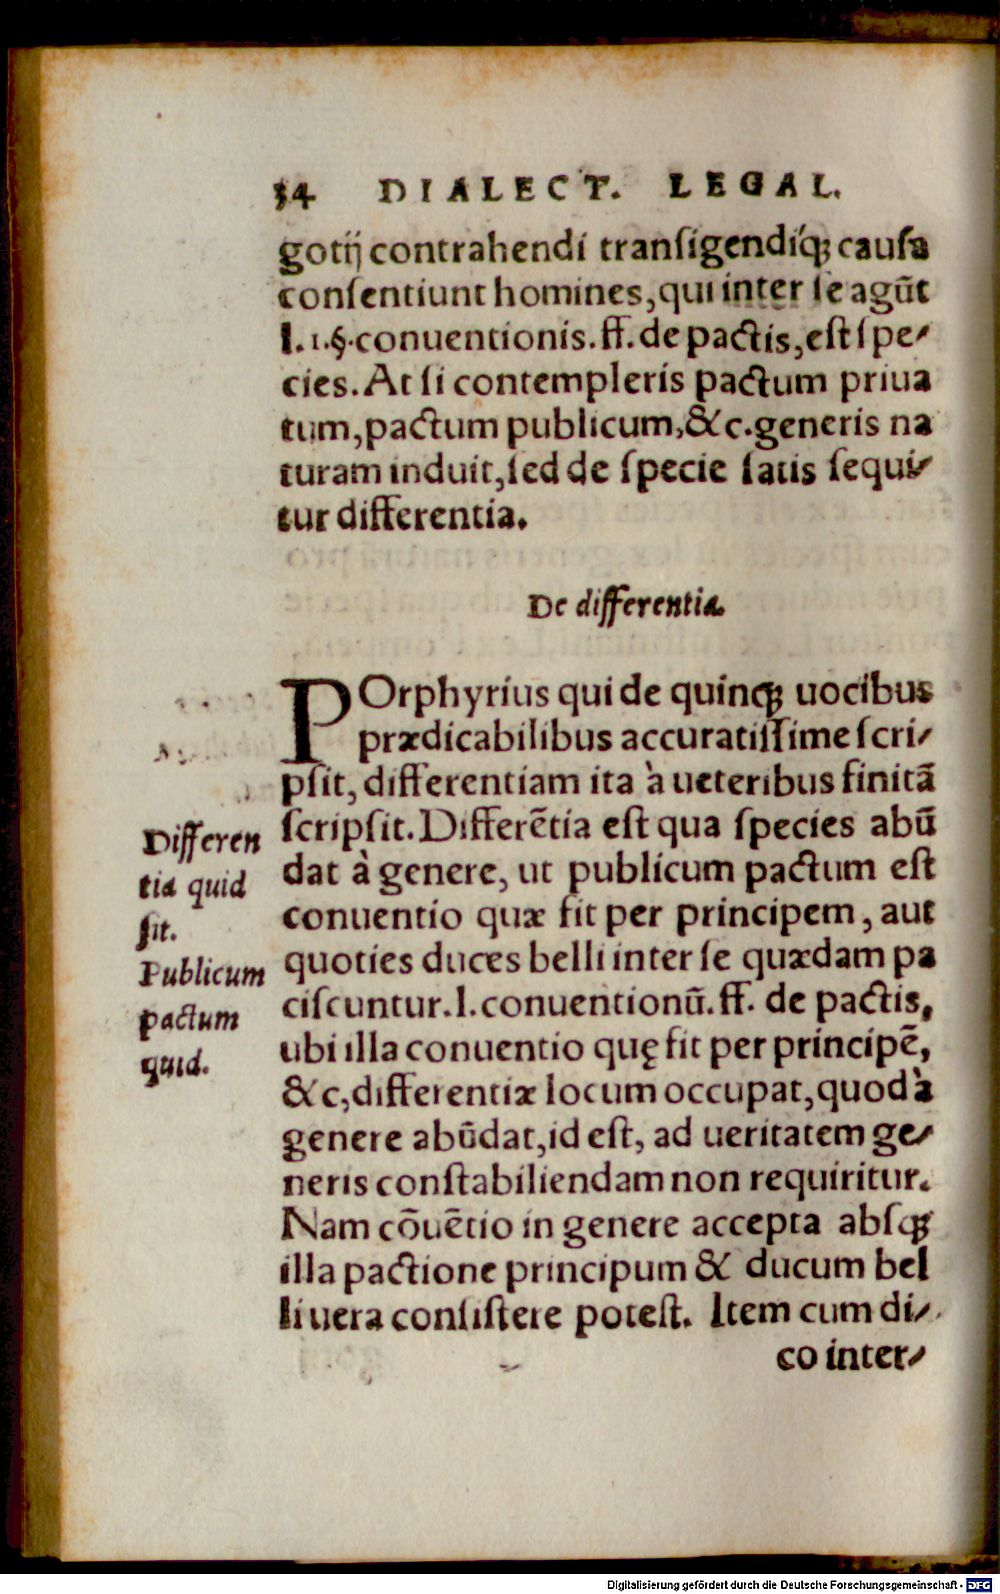 34 DIALECT. LEGAL.
gotij contrahendi transigendiq́ꝫ causa
consentiunt homines, qui inter se agūt
l.1.§.conuentionis.ff.de pactis, est spe-
cies. At si contempleris pactum priua
tum, pactum publicum, &c. generis na
turam induit, sed de specie satis sequi-
tur differentia.
De differentia.
POrphyrius qui de quinqꝫ uocibus
prædicabilibus accuratissime scri-
psit, differentiam ita à ueteribus finitā
scripsit. Differētia est qua species abū
dat à genere, ut publicum pactum est
conuentio quæ fit per principem, aut
quoties duces belli inter se quædam pa
ciscuntur. l. conuentionū. ff. de pactis,
ubi illa conuentio quę fit per principē,
&c, differentiæ locum occupat, quod à
genere abūdat, id est, ad ueritatem ge-
neris constabiliendam non requiritur.
Nam cōuētio in genere accepta absqꝫ
illa pactione principum & ducum bel
li uera consistere potest. Item cum di-
co inter-
Differen
tia quid
sit.
Publicum
pactum
quid.
Digitalisierung gefördert durch die Deutsche Forschungsgemeinschaft - DFG